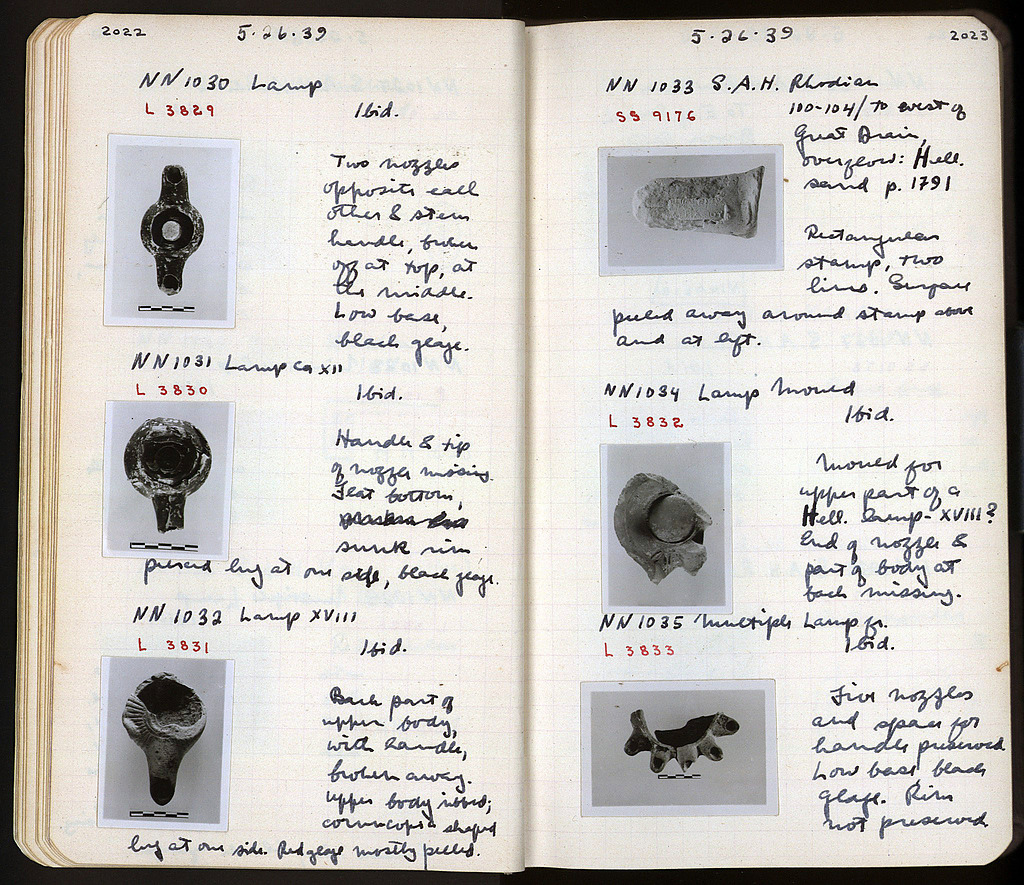 2022
5·26·39
NN1030 Lamp
L 3829
Ibid.
Two nozzles
opposite each
other & stem
handle, broken
off at top, at
the middle.
Low base,
black glaze.
NN1031 Lamp ca XII
L 3830
Ibid.
Handle & tip
of nozzle missing.
Flat bottom,
sunk rim
pierced lug at one side, black glaze.
NN 1032 Lamp XVIII
L 3831
Ibid.
Back part of
upper body,
with handle,
broken away.
Upper body ribbed;
cornucopia shaped
lug at one side. Red glaze mostly peeled.
5·26·39
2023
NN 1033 S.A.H. Rhodian
SS 9176
100-104/ to west of
Great Drain,
overflow: Hell.
sand p. 1791
Rectangular
stamp, two
lines. Surface
peeled away around stamp above
and at left.
NN1034 Lamp Mould
L 3832
Ibid.
Mould for
upper part of a
Hell. lamp - XVIII?
End of nozzle &
part of body at
back missing.
NN 1035 Multiple Lamp fr.
L 3833
Ibid.
Five nozzles
and space for
handle preserved
Low base, black
glaze. Rim
not preserved